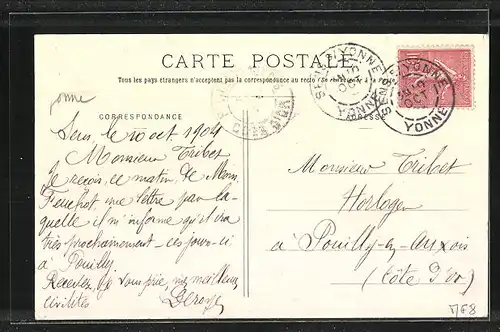 CARTE POSTALE
Tous les pays étrangers n'acceptent pas la correspondance au recto
yonne
CORRESPONDANCE
ADRESSE
Sens, le 10 oct 1904
Monsieur Tribet
Je reçois, ce matin, de
une lettre par la-
quelle il m'informe qu'il ira
très prochainement - ces jours-ci
à Pouilly.
Recevez, je vous prie, mes meilleures
civilités
Monsieur Tribet
Horloger
à Pouilly-en-Auxois
(Côte d'Or)
SENS YONNE
YONNE
SENS YONNE
YONNE